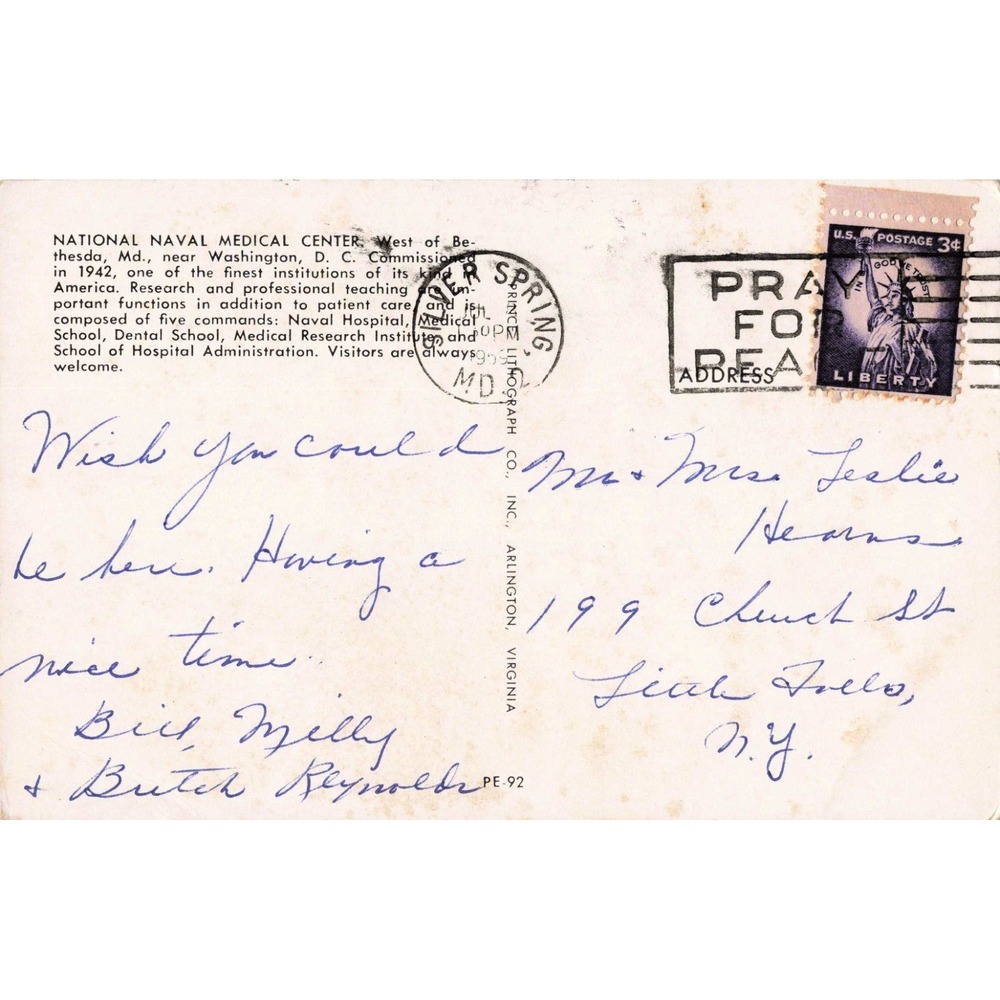 NATIONAL NAVAL MEDICAL CENTER. West of Be-
thesda, Md., near Washington, D. C. Commissioned
in 1942, one of the finest institutions of its kind in
America. Research and professional teaching are im-
portant functions in addition to patient care and is
composed of five commands: Naval Hospital, Medical
School, Dental School, Medical Research Institute and
School of Hospital Administration. Visitors are always
welcome.
SILVER SPRING,
JUL
PM
1959
MD.
PRAY
FOR
PEACE
U.S. POSTAGE 3¢
IN GOD WE TRUST
LIBERTY
ADDRESS
Wish you could
be here. Having a
nice time.
Bill, Milly
& Butch Reynolds
PRINCE LITHOGRAPH CO., INC., ARLINGTON, VIRGINIA
PE-92
Mr & Mrs. Leslie
Hearns
199 Church St
Little Falls,
N.Y.